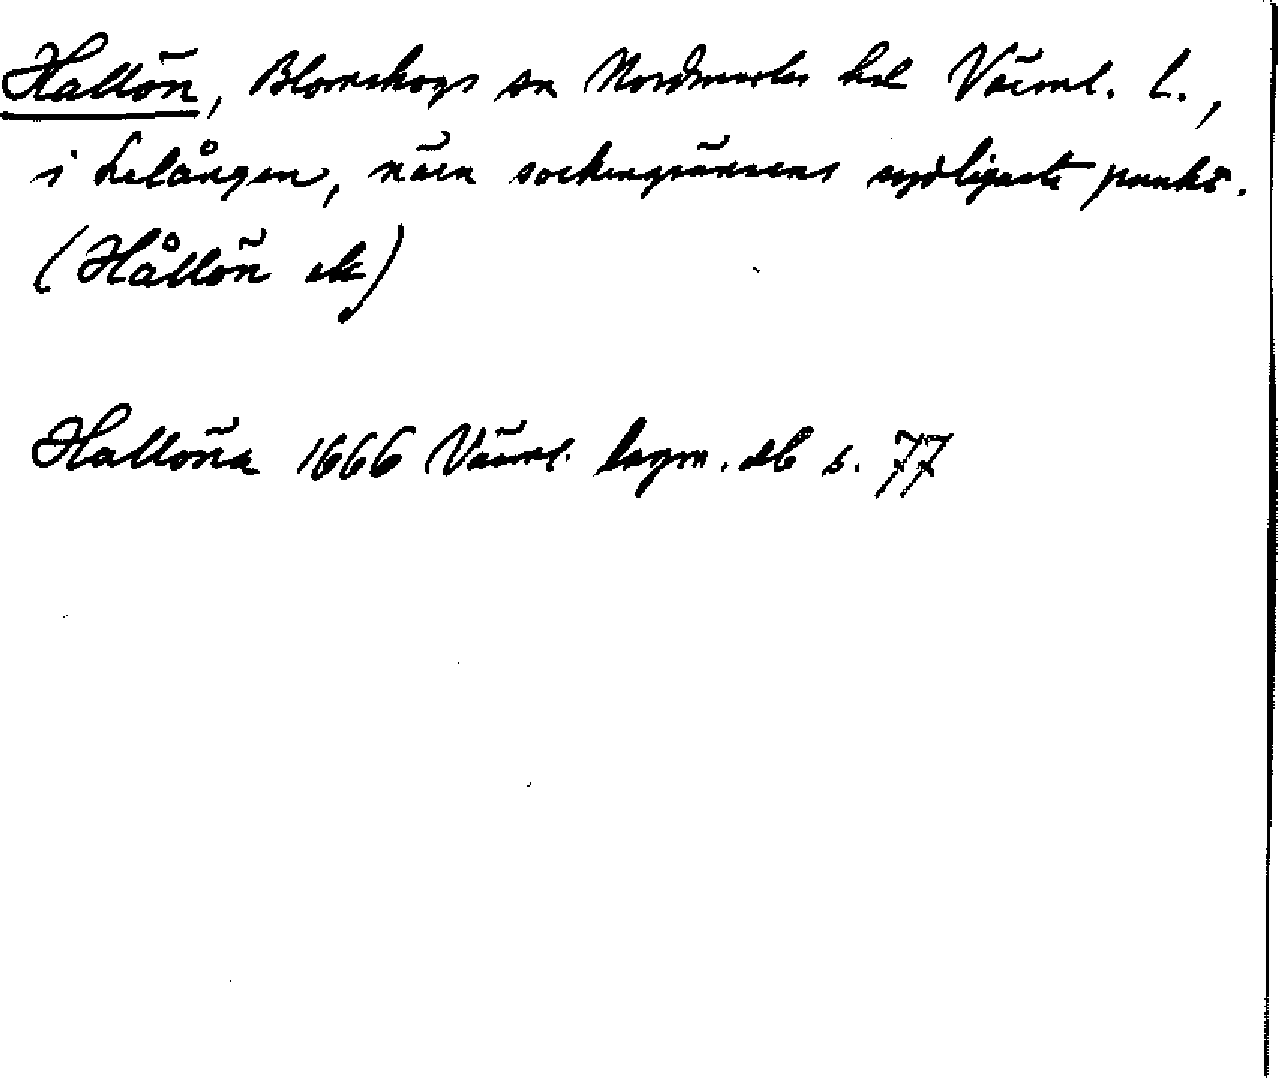 Hallön, Blomskogs sn Nordmarks hd Värml. l.,
i Lelången, nära sockengränsens sydligaste punkt.
(Hållön ek)
Hallöna 1666 Värml. lagm. db s. 77